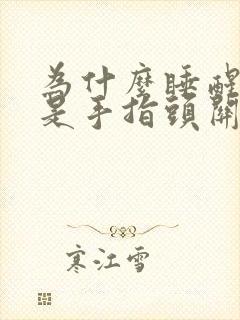 為什麼睡醒
是手指頭開
寒江雪